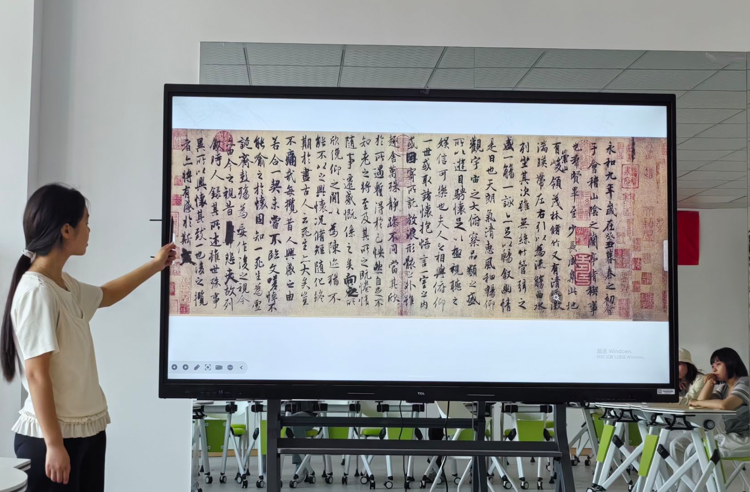 永和九年歲在癸丑暮春之初會
于會稽山陰之蘭亭脩稧事
也羣賢畢至少長咸集此地
有崇山峻領茂林脩竹又有清流激
湍暎帶左右引以為流觴曲水
列坐其次雖無絲竹管弦之
盛一觴一詠亦足以暢敘幽情
是日也天朗氣清惠風和暢仰
觀宇宙之大俯察品類之盛
所以遊目騁懷足以極視聽之
娛信可樂也夫人之相與俯仰
一世或取諸懷抱悟言一室之內
或因寄所託放浪形骸之外雖
趣舍萬殊靜躁不同當其欣
於所遇蹔得於己怏然自足不
知老之將至及其所之既惓情
隨事遷感慨係之矣向之所
欣俛仰之閒以為陳迹猶不
能不以之興懷況脩短隨化終
期於盡古人云死生亦大矣豈
不痛哉每攬昔人興感之由
若合一契未嘗不臨文嗟悼不
能喻之於懷固知一死生為虛
誕齊彭殤為妄作後之視今
亦由今之視昔悲夫故列
敘時人錄其所述雖世殊事
異所以興懷其致一也後之攬
者亦將有感於斯文
激活 Windows
TCL